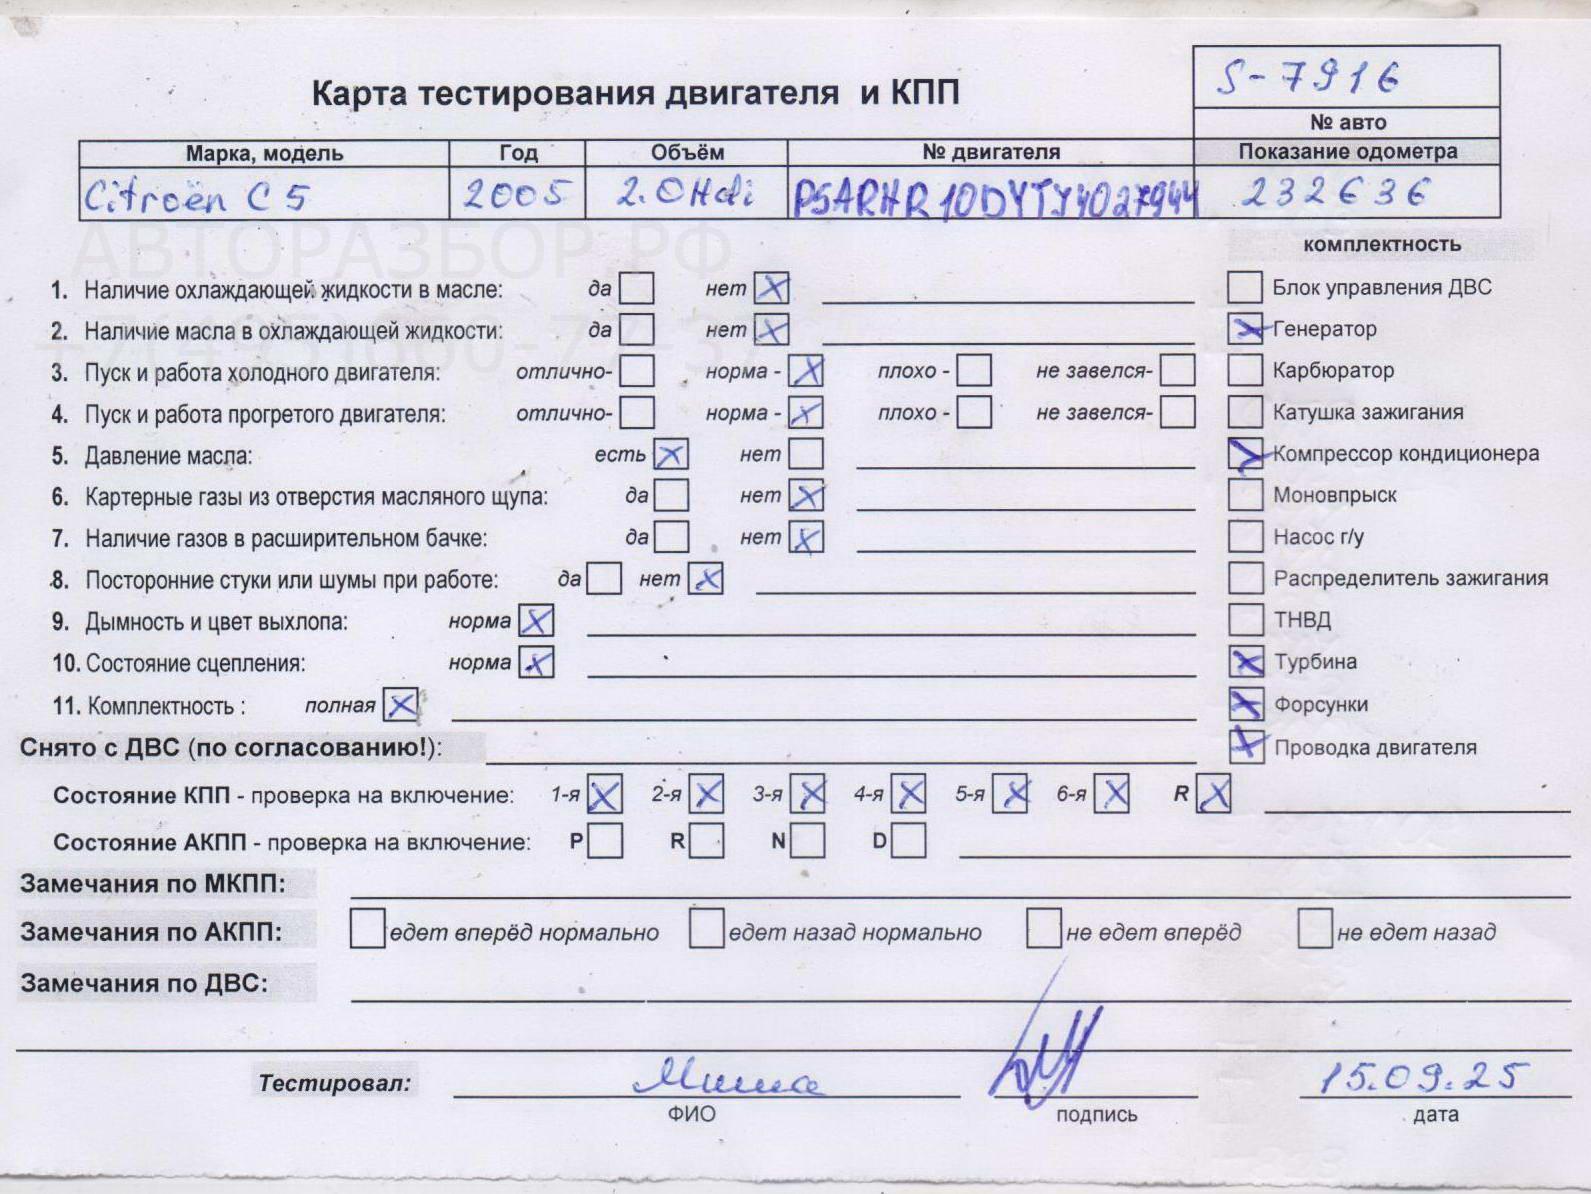 S-7916
Карта тестирования двигателя и КПП
№ авто
Марка, модель Год Объём № двигателя Показание одометра
Citroën C5 2005 2.0Hdi PSARHR10DYTJ4027944 232636
АВТОРАЗБОР.РФ
комплектность
1. Наличие охлаждающей жидкости в масле: да нет X Блок управления ДВС
2. Наличие масла в охлаждающей жидкости: да нет X X Генератор
3. Пуск и работа холодного двигателя: отлично- норма - X плохо - не завелся- Карбюратор
4. Пуск и работа прогретого двигателя: отлично- норма - X плохо - не завелся- Катушка зажигания
5. Давление масла: есть X нет X Компрессор кондиционера
6. Картерные газы из отверстия масляного щупа: да нет X Моновпрыск
7. Наличие газов в расширительном бачке: да нет X Насос г/у
8. Посторонние стуки или шумы при работе: да нет X Распределитель зажигания
9. Дымность и цвет выхлопа: норма X ТНВД
10. Состояние сцепления: норма X X Турбина
11. Комплектность : полная X X Форсунки
Снято с ДВС (по согласованию!): X Проводка двигателя
Состояние КПП - проверка на включение: 1-я X 2-я X 3-я X 4-я X 5-я X 6-я X R X
Состояние АКПП - проверка на включение: P R N D
Замечания по МКПП:
Замечания по АКПП: едет вперёд нормально едет назад нормально не едет вперёд не едет назад
Замечания по ДВС:
Тестировал: Миша 15.09.25
ФИО подпись дата